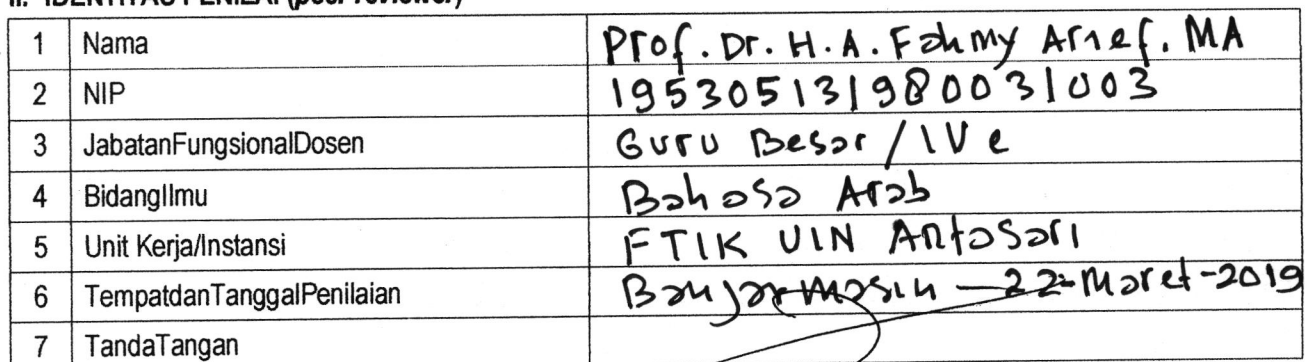 II. IDENTITAS PENILAI (peer reviewer)
1 Nama Prof. Dr. H. A. Fahmy Arief. MA
2 NIP 195305131980031003
3 JabatanFungsionalDosen Guru Besar / IV e
4 BidangIlmu Bahasa Arab
5 Unit Kerja/Instansi FTIK UIN Antasari
6 TempatdanTanggalPenilaian Banjarmasin - 22-Maret-2019
7 TandaTangan